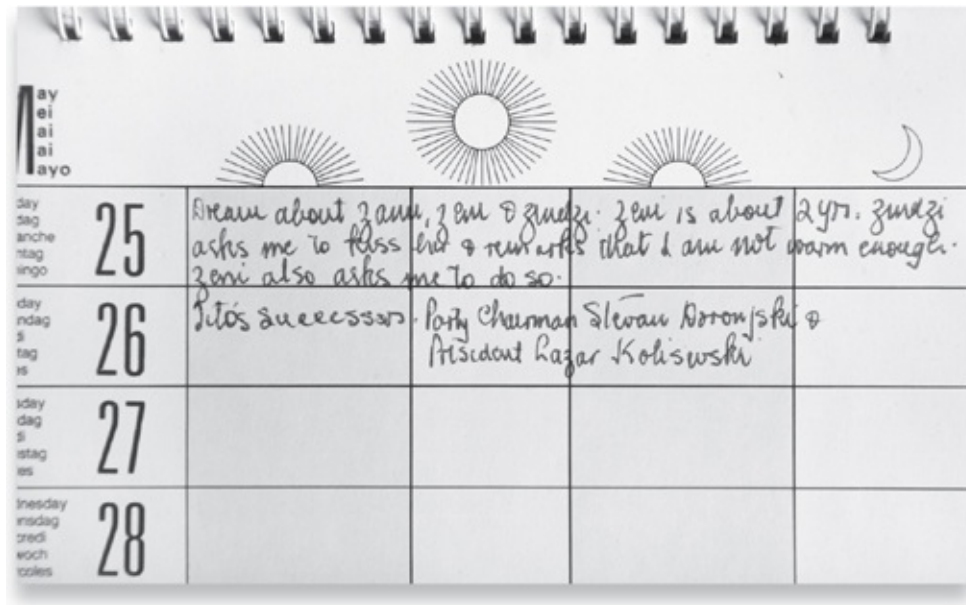 May
ei
ai
ai
ayo
day
dag
anche
ntag
ingo
25
Dream about Zami, Zeni & Zindzi. Zeni is about 2 yrs. Zindzi
asks me to kiss her & remarks that I am not warm enough.
Zeni also asks me to do so.
day
ndag
di
tag
es
26
Tito's successors. Party Chairman Stevan Doronjski &
President Lazar Kolisevski
sday
dag
di
stag
es
27
dnesday
ensdag
credi
woch
rcoles
28